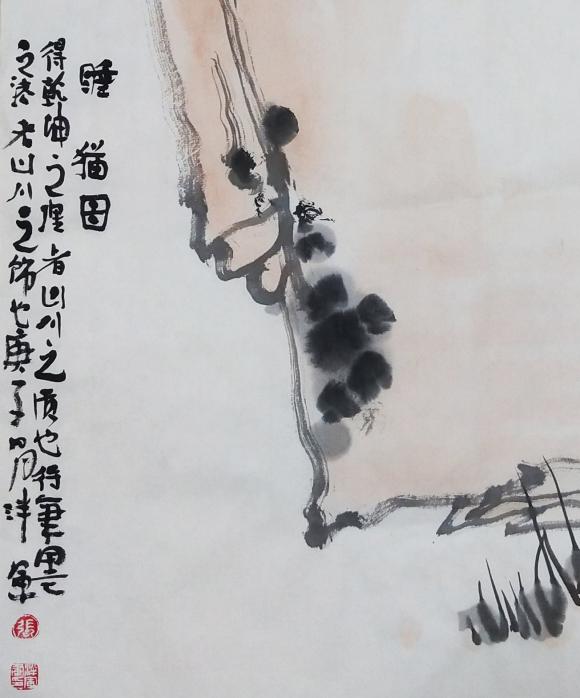 睡猫图
得乾坤之理者山川之质也得筆墨
之法者山川之饰也庚子月洋軍
張